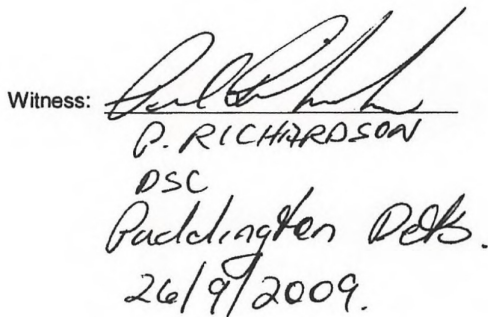 Witness:
P. RICHARDSON
DSC
Paddington Dets.
26/9/2009.